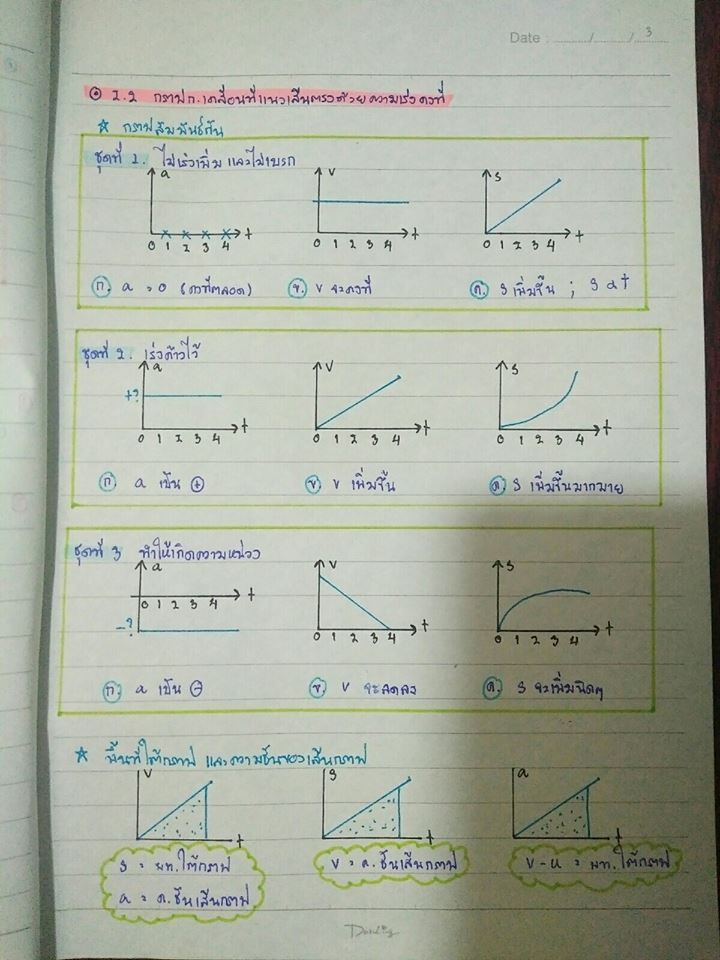 Date : ......../......../...3.....
2.2 กราฟก.เคลื่อนที่แนวเส้นตรงด้วยความเร่งคงที่
☆ กราฟสัมพันธ์กัน
ชุดที่ 1. ไม่เร่งเพิ่มและไม่เบรก
a v s
0 1 2 3 4 t 0 1 2 3 4 t 0 1 2 3 4 t
ก. a = 0 (คงที่ตลอด) ข. v จะคงที่ ค. s เพิ่มขึ้น ; s α t
ชุดที่ 2. เร่งค้างไว้
a v s
+?
0 1 2 3 4 t 0 1 2 3 4 t 0 1 2 3 4 t
ก. a เป็น + ข. v เพิ่มขึ้น ค. s เพิ่มขึ้นมากมาย
ชุดที่ 3 ทำให้เกิดความหน่วง
a v s
0 1 2 3 4 t
-? 0 1 2 3 4 t 0 1 2 3 4 t
ก. a เป็น - ข. v จะลดลง ค. s จะเพิ่มนิดๆ
☆ พื้นที่ใต้กราฟ และความชันของเส้นกราฟ
v s a
t t t
s = พท.ใต้กราฟ v = ค.ชันเส้นกราฟ v-u = พท.ใต้กราฟ
a = ค.ชันเส้นกราฟ